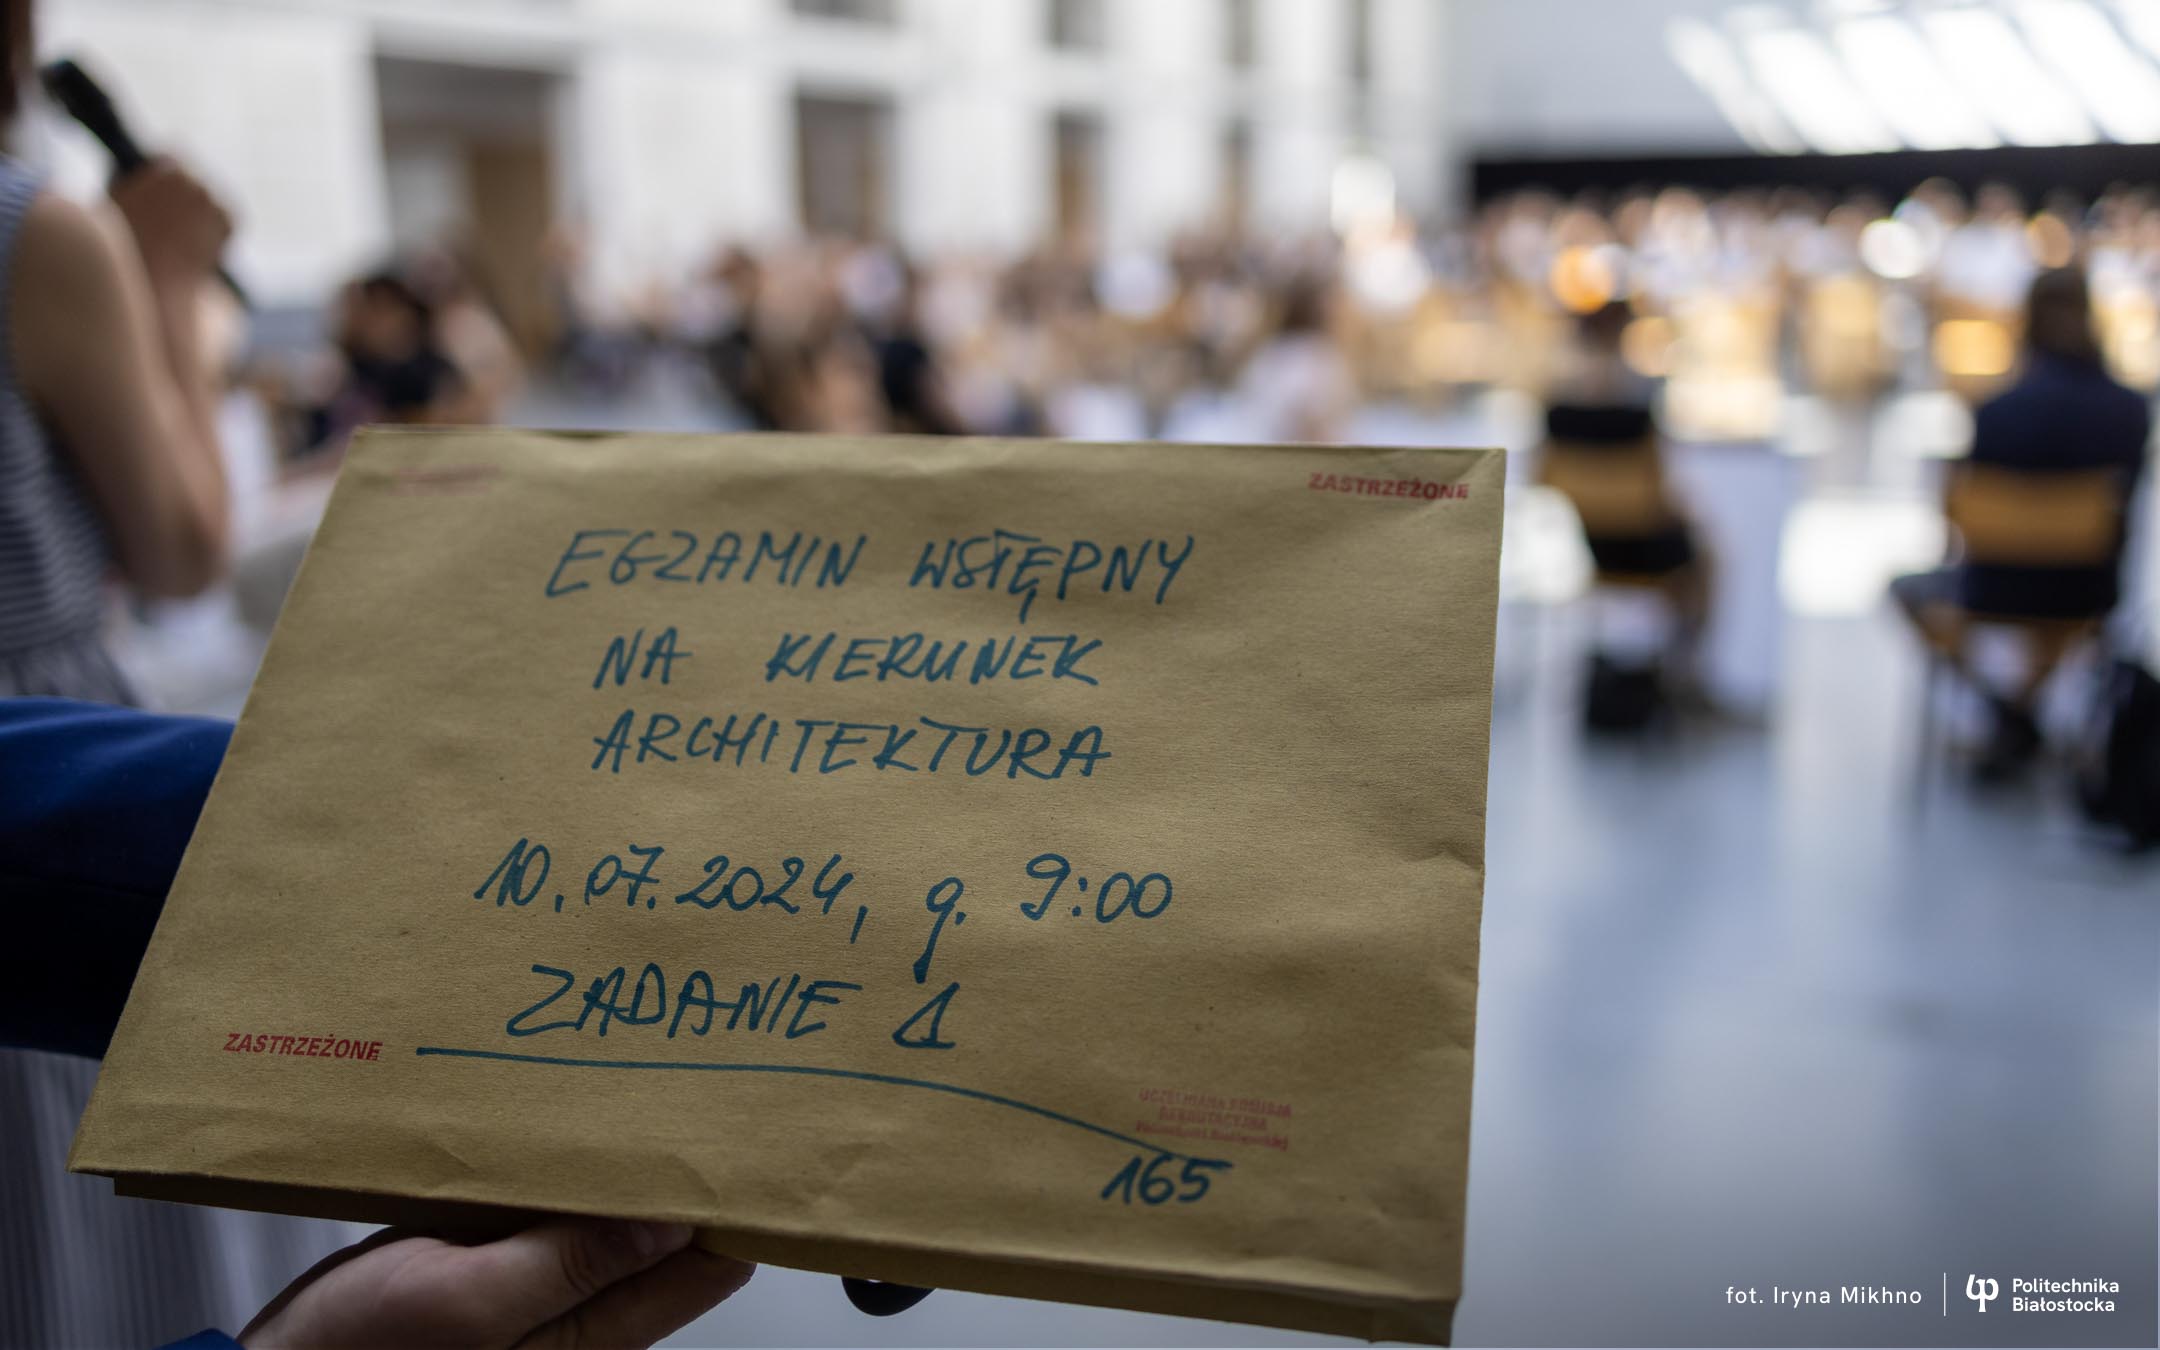 ZASTRZEŻONE
EGZAMIN WSTĘPNY
NA KIERUNEK
ARCHITEKTURA
10.07.2024, g. 9:00
ZADANIE 1
ZASTRZEŻONE
UCZELNIANA KOMISJA
REKRUTACYJNA
Politechniki Białostockiej
165
fot. Iryna Mikhno
Politechnika
Białostocka